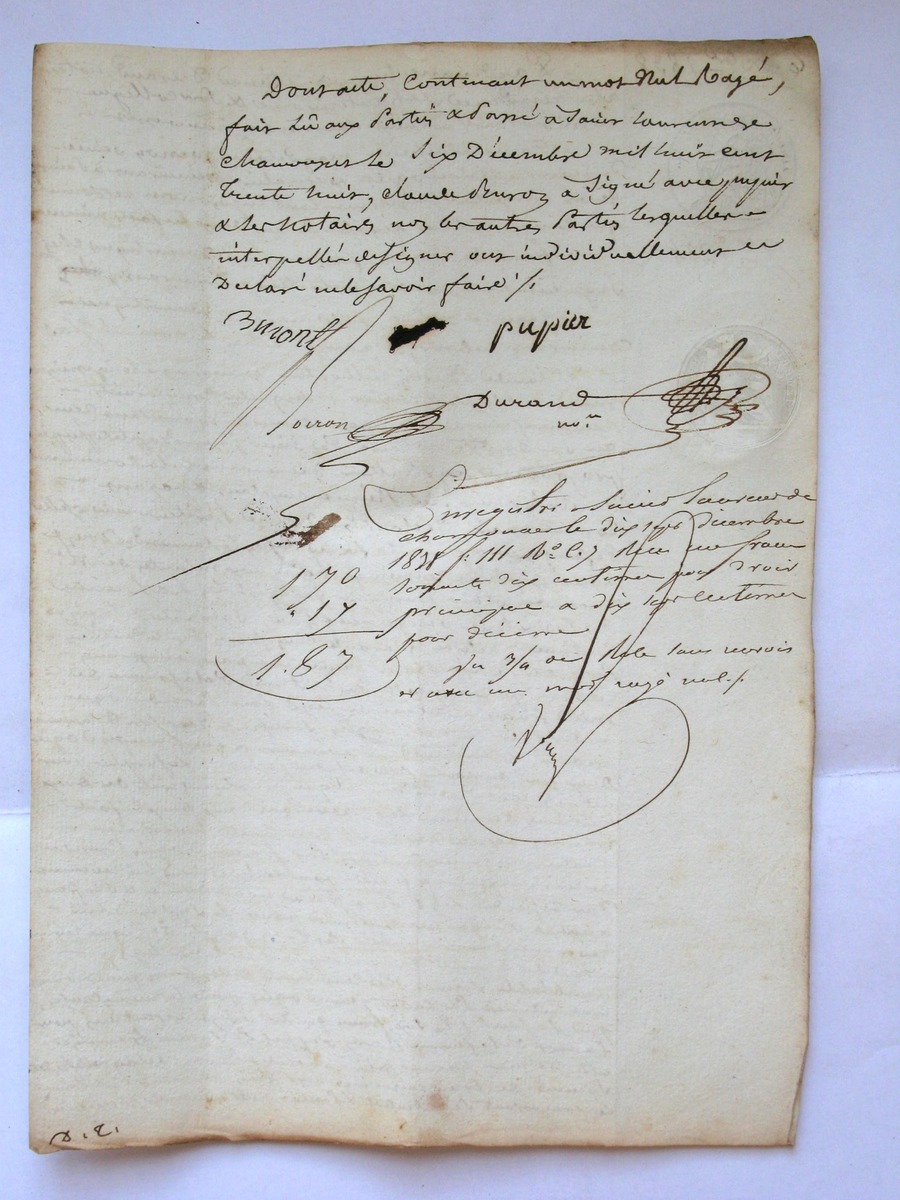 Dont acte, Contenant un mot Nul Rayé,
fait Lû aux Parties & Passé à Saint Laurent de
chamousset le Six Décembre mil huit cent
trente huit, claude à Signé avec pupier
& Les Notaires non les autres Parties lesquelles
interpellées de Signer ont individuellement
Déclaré ne le Savoir faire /.
pupier
Durand
no.re
Enregistré à Saint Laurent de
chamousset le dix sept décembre
1838 f. 111 Ro. C. 7 Reçu un franc
soixante dix centimes pour droit
principal & dix sept centimes
pour décime
1,70
17
1.87
Sur 3/4 de Rôle sans renvois
et avec un mot rayé nul /.